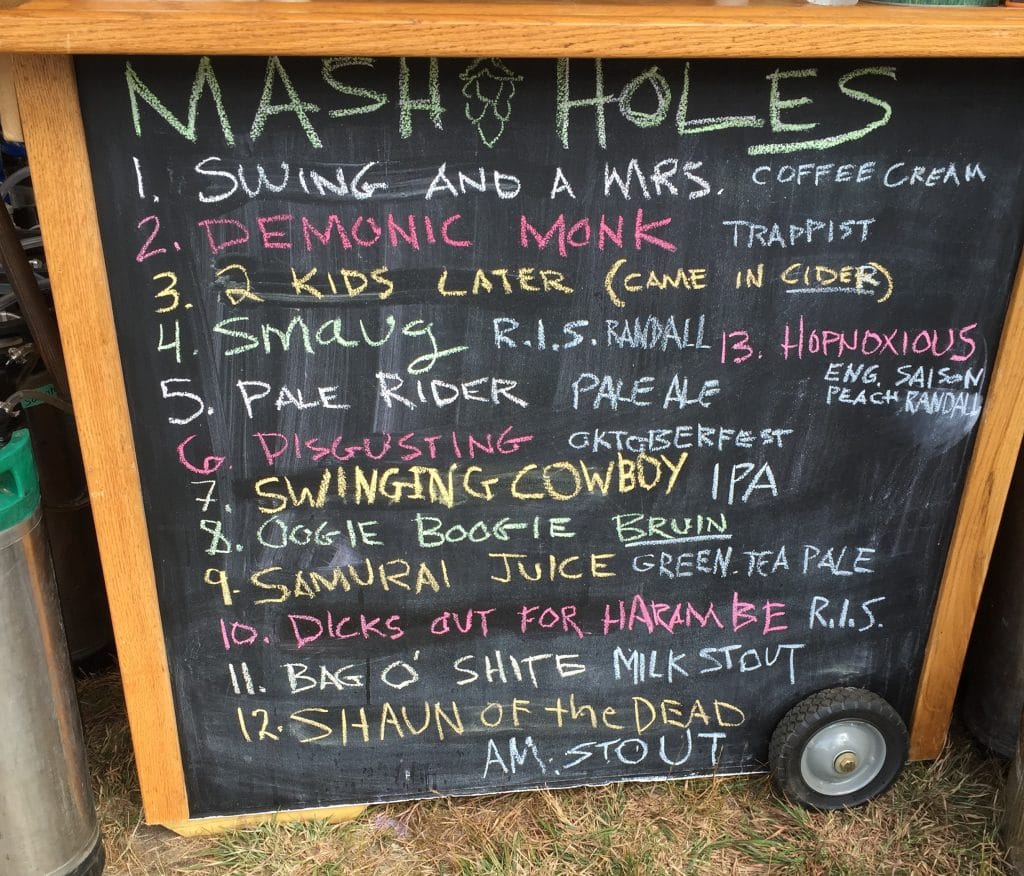 MASH HOLES
1. SWING AND A MRS. COFFEE CREAM
2. DEMONIC MONK TRAPPIST
3. 2 KIDS LATER (CAME IN CIDER)
4. Smaug R.I.S. RANDALL
13. HOPNOXIOUS
ENG. SAISON
PEACH RANDALL
5. PALE RIDER PALE ALE
6. DISGUSTING OKTOBERFEST
7. SWINGING COWBOY IPA
8. OOGIE BOOGIE BRUIN
9. SAMURAI JUICE GREEN TEA PALE
10. DICKS OUT FOR HARAMBE R.I.S.
11. BAG O' SHITE MILK STOUT
12. SHAUN OF the DEAD
AM. STOUT